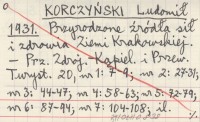 KORCZYŃSKI Ludomił
1931. Przyrodzone źródła sił
i zdrowia Ziemi Krakowskiej.
- Prz. Zdroj.-Kąpiel. i Przew.
Turyst. 20, nr 1: 7-9; nr 2: 27-31;
nr 3: 44-47; nr 4: 58-63; nr 5: 72-79;
nr 6: 87-94; nr 7: 104-108; il.